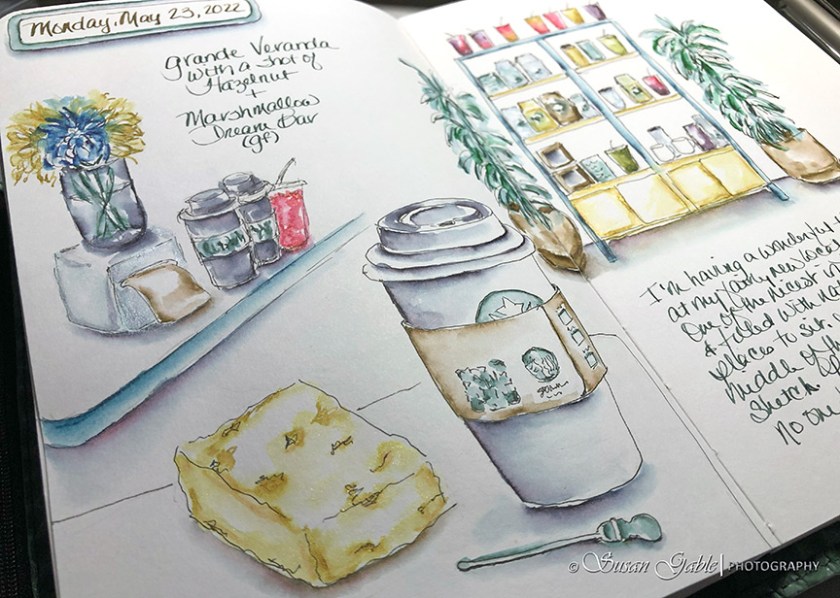 Monday, May 23, 2022
Grande Veranda
with a shot of
Hazelnut
+
Marshmallow
Dream Bar
(gf)
I'm having a wonderful
at my fairly new local
One of the nicest
& filled with
places to sit.
Middle of th
sketch
No one
© Susan Gable | PHOTOGRAPHY